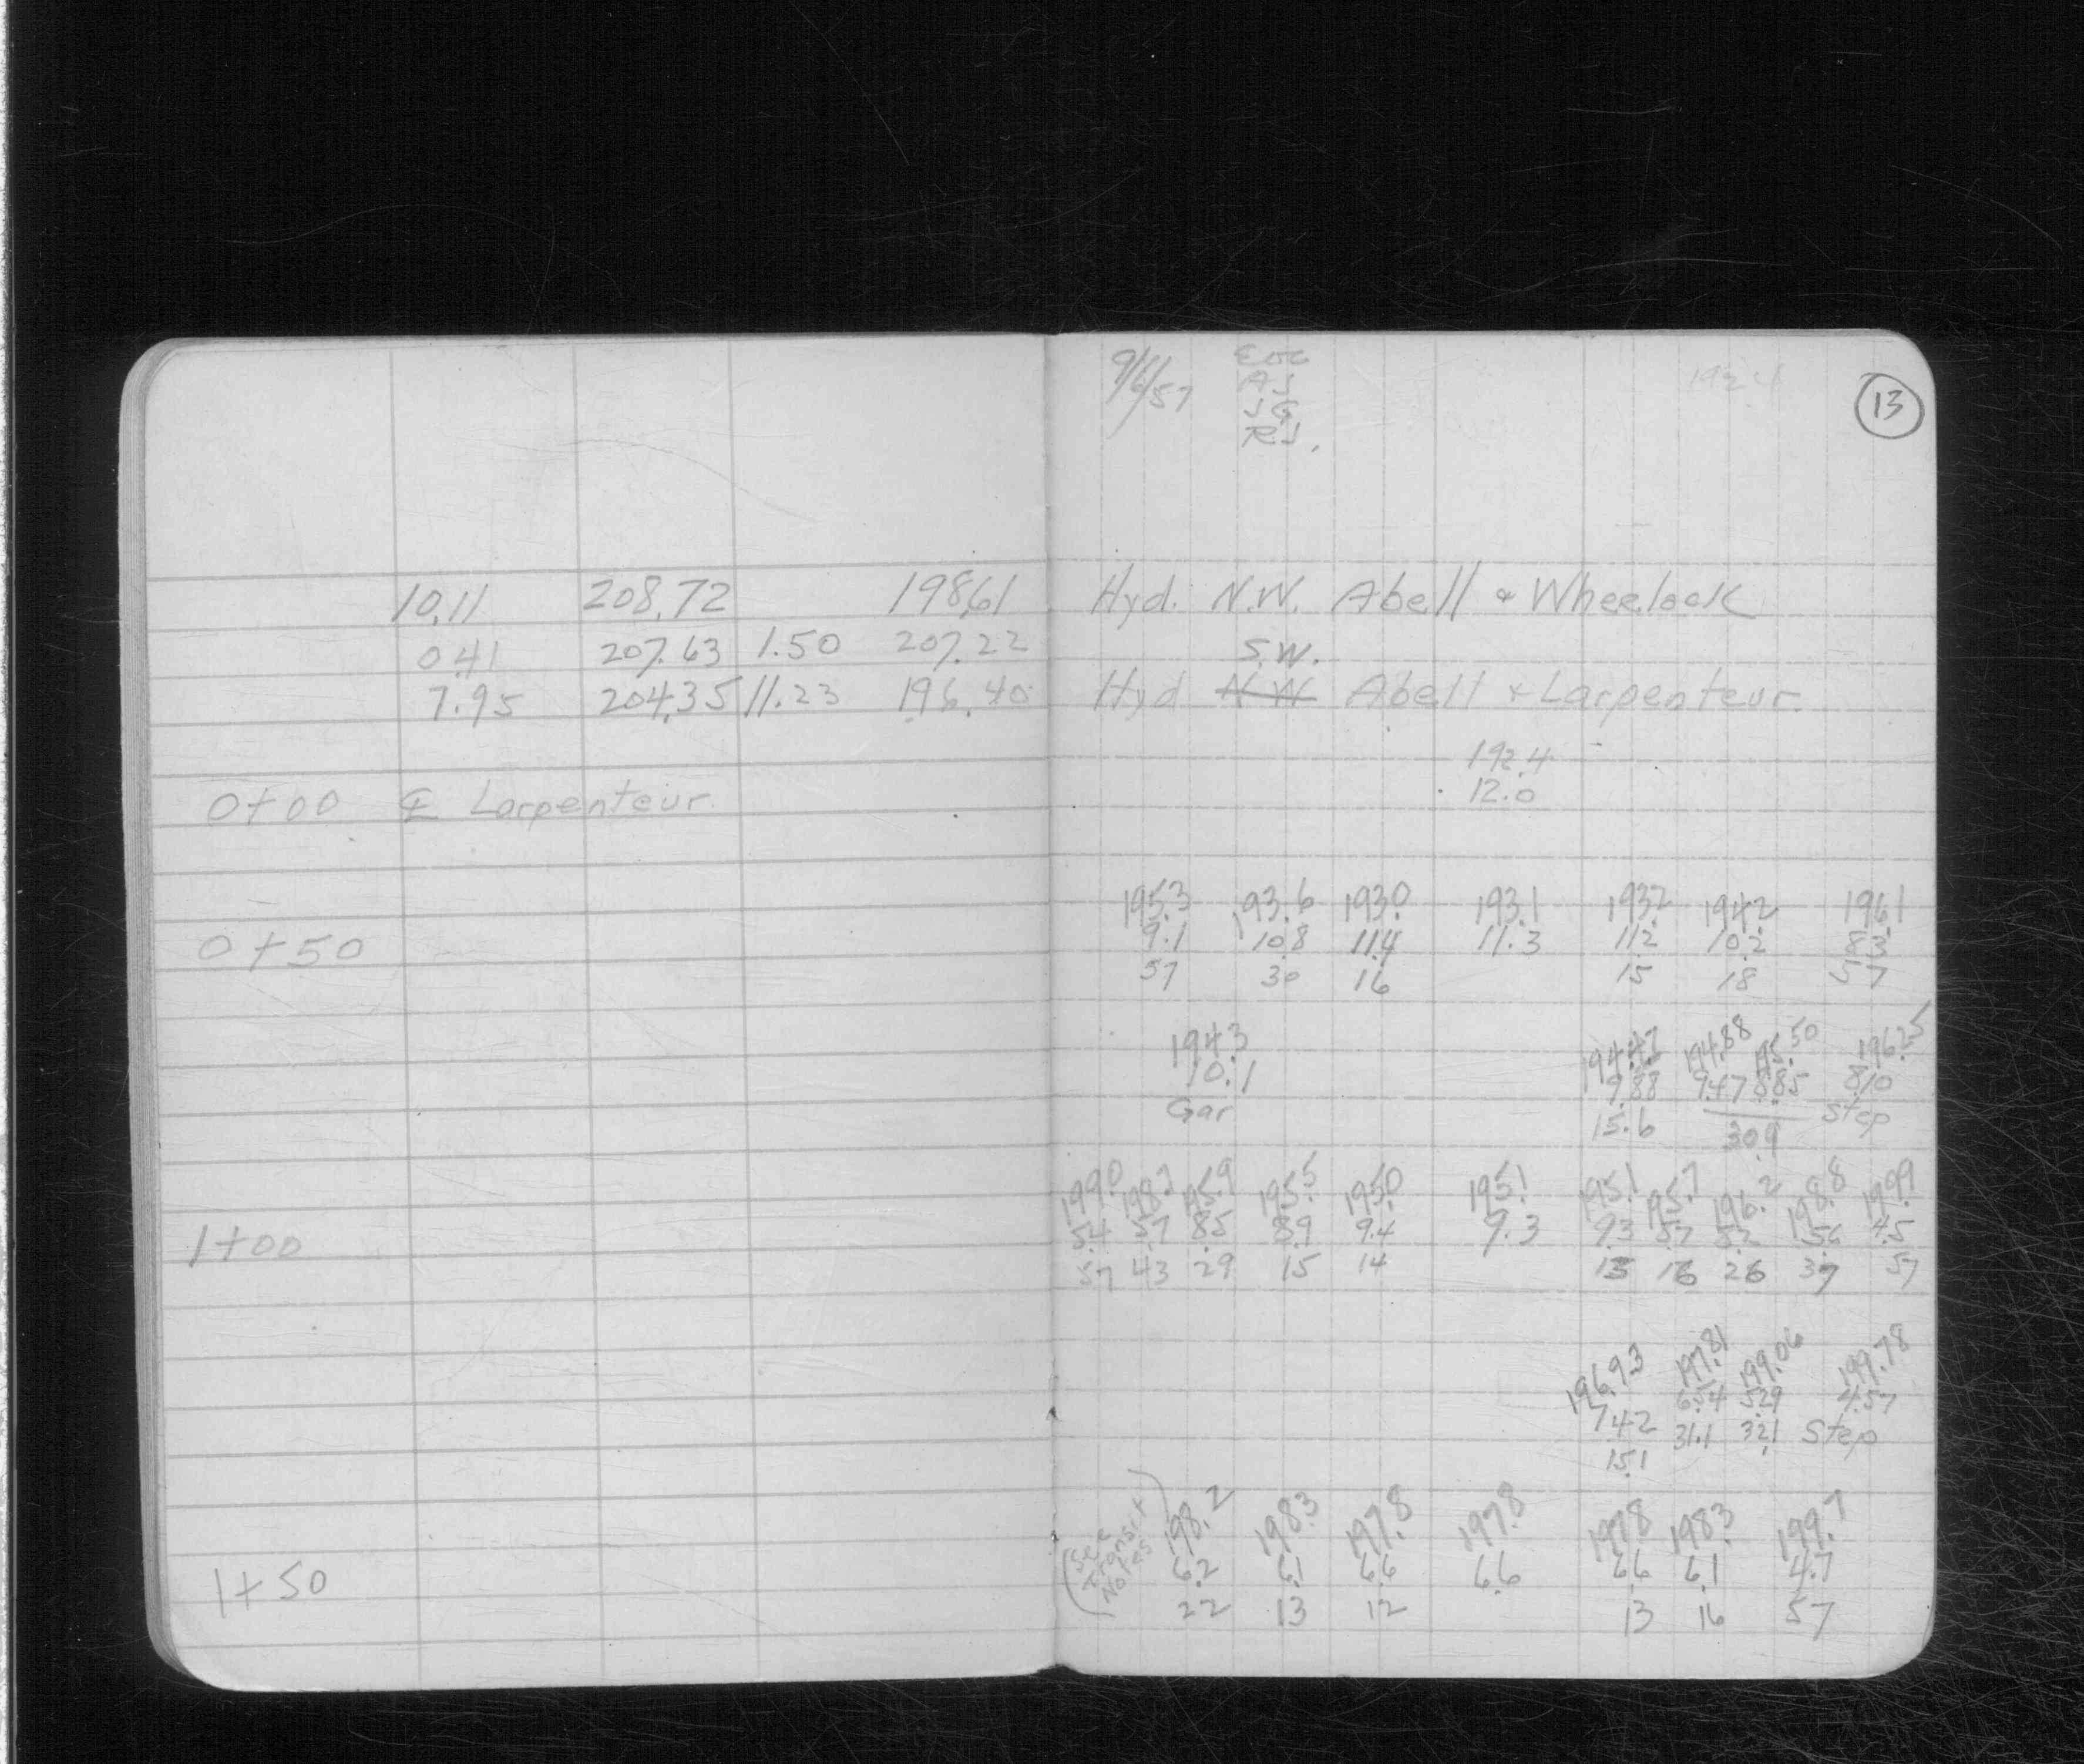 9/6/57
A.J.
J.G.
R.J.
13
10.11 208.72 198.61 Hyd. N.W. Abell & Wheelock
0.41 207.63 1.50 207.22
S.W.
7.95 204.35 11.23 196.40 Hyd N.W. Abell & Larpenteur.
192.4
0+00 ℄ Larpenteur. 12.0
195.3 193.6 193.0 193.1 193.2 194.2 196.1
0+50 9.1 10.8 11.4 11.3 11.2 10.2 8.3
57 30 16 15 18 57
194.3 194.47 194.88 195.50 196.25
10.1 9.88 9.47 8.85 8.10
Gar 15.6 30.9 Step
199.0 198.7 195.9 195.5 195.0 195.1 195.1 195.7 196.2 198.8 199.9
1+00 5.4 5.7 8.5 8.9 9.4 9.3 9.3 5.7 5.2 5.6 4.5
57 43 29 15 14 13 16 26 37 57
196.93 197.81 199.06 199.78
7.42 6.54 5.29 4.57
15.1 31.1 32.1 Step
(See Transit Notes) 198.2 198.3 197.8 197.8 197.8 198.3 199.7
1+50 6.2 6.1 6.6 6.6 6.6 6.1 4.7
22 13 12 13 16 57